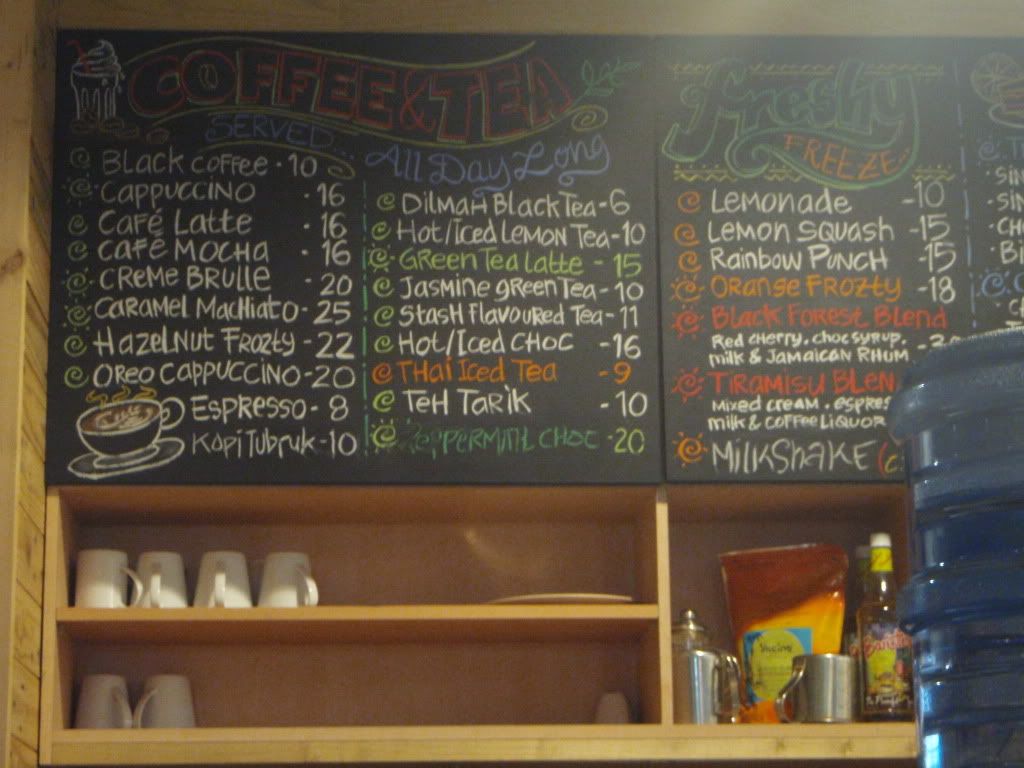 COFFEE & TEA
SERVED...
All Day Long
BLACK COFFEE · 10
CAPPUCCINO · 16
CAFÉ LATTE · 16
CAFÉ MOCHA · 16
CREME BRULLE - 20
CARAMEL MACHIATO - 25
HAZELNUT FROZTY - 22
OREO CAPPUCCINO - 20
ESPRESSO - 8
KOPI TUBRUK - 10
Café
DILMAH BLACK TEA - 6
HOT/ICED LEMON TEA - 10
GREEN TEA LATTE - 15
JASMINE GREEN TEA - 10
STASH FLAVOURED TEA - 11
HOT/ICED CHOC - 16
THAI ICED TEA - 9
TEH TARIK - 10
PEPPERMINT CHOC - 20
Freshy
FREEZE...
LEMONADE - 10
LEMON SQUASH - 15
RAINBOW PUNCH - 15
ORANGE FROZTY - 18
BLACK FOREST BLEND
RED CHERRY, CHOC SYRUP,
MILK & JAMAICAN RHUM -
TIRAMISU BLEN
MIXED CREAM, ESPRES
MILK & COFFEE LIQUOR
MILKSHAKE (C